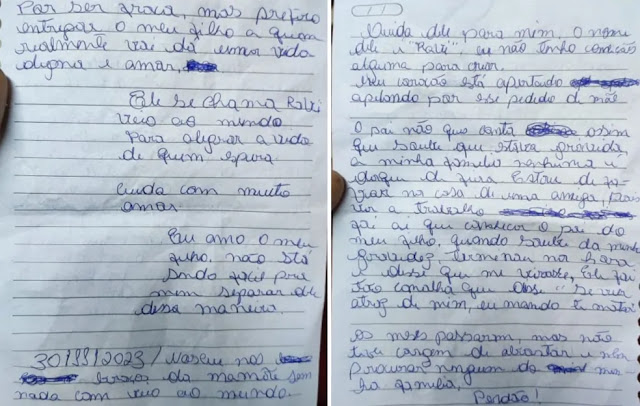 Por ser trava, mas prefiro
entregar o meu filho a quem
realmente vai dá uma vida
digna e amor,
Ele se chama Ravi
veio ao mundo
para alegrar a vida
de quem espera
Cuida com muito
amor
Eu amo o meu
filho, não stá
sendo facil pra
mim separar dele
dessa maneira.
30/11/2023/ Nasceu nos
braços da mamãe sem
nada com veio ao mundo.
Cuida dele para mim, o nome
dele e "Ravi", eu não tenho condição
alguma para criar.
Meu coração stá apertado
apelando por esse pedido de mãe
O pai não que conta assim
que soube que estava grávida,
a minha familia nenhuma é
daqui de Estou de fa-
vor na casa de uma amiga, para
vir a trabalho
foi ai que conheci o pai do
meu filho, quando soube da minha
gravidez, terminou na hora
e disse que me virasse, Ele foi
tão canalha que disse "Se vim
atraz de mim, eu mando ti matar
Os meses passarm, mas não
tive coragem de abortar e nem
procurar ninguem da mi-
ha familia,
Perdão!